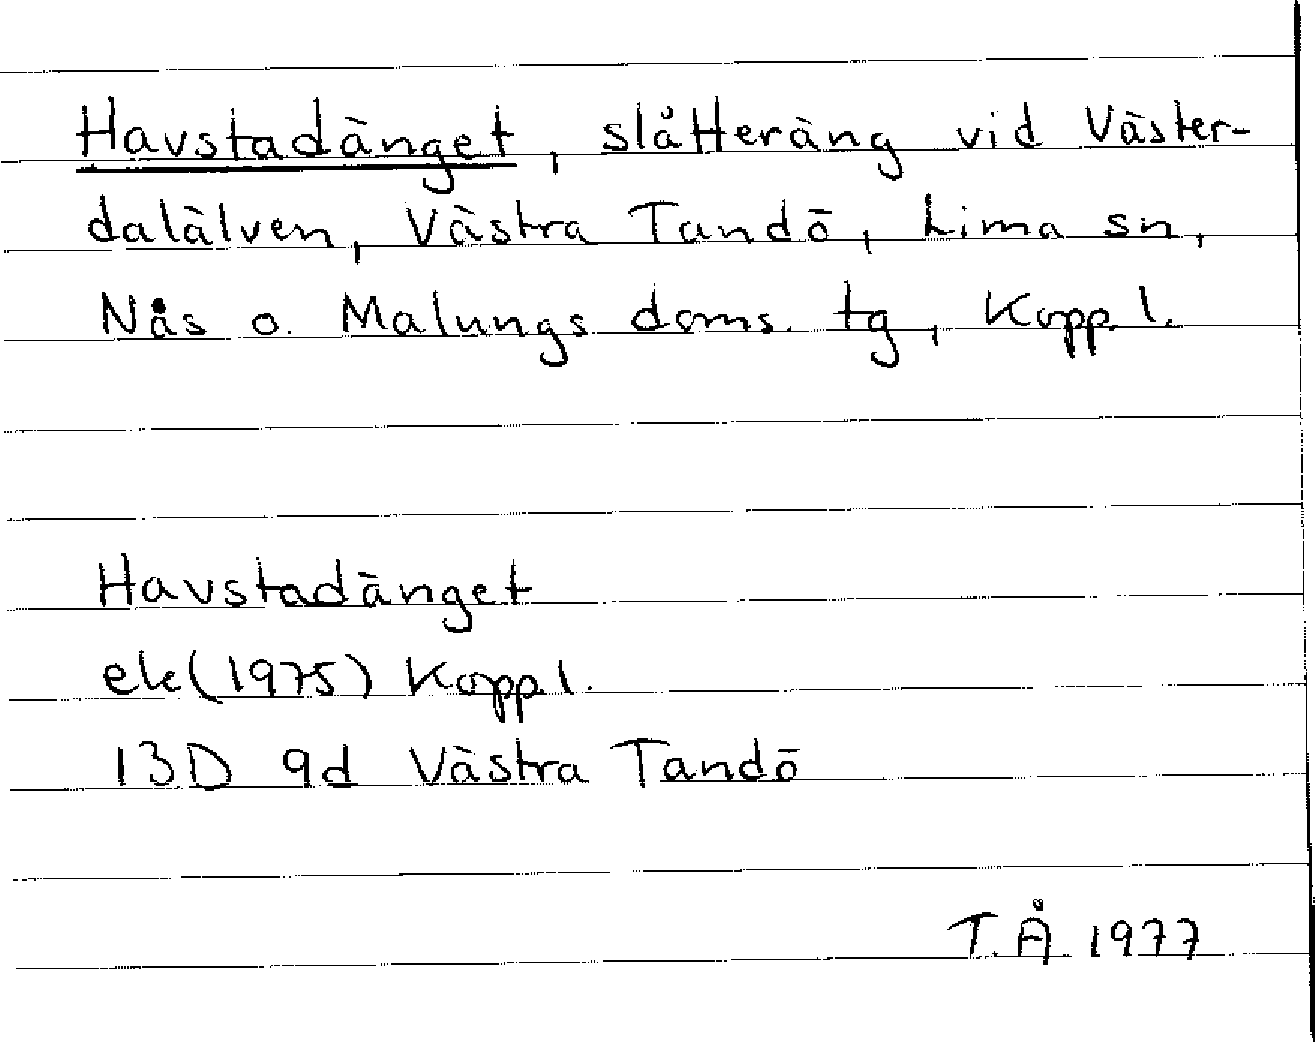 Havstadänget, slåtteräng vid Väster-
dalälven, Västra Tandö, Lima sn,
Nås o. Malungs doms. tg, Kopp.l.
Havstadänget
ek (1975) Kopp.l.
13D 9d Västra Tandö
T.Å. 1977